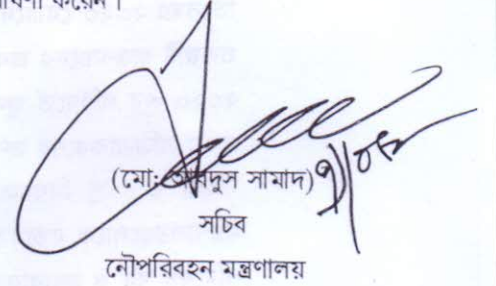 করেন।
(মো: আবদুস সামাদ)
সচিব
নৌপরিবহন মন্ত্রণালয়